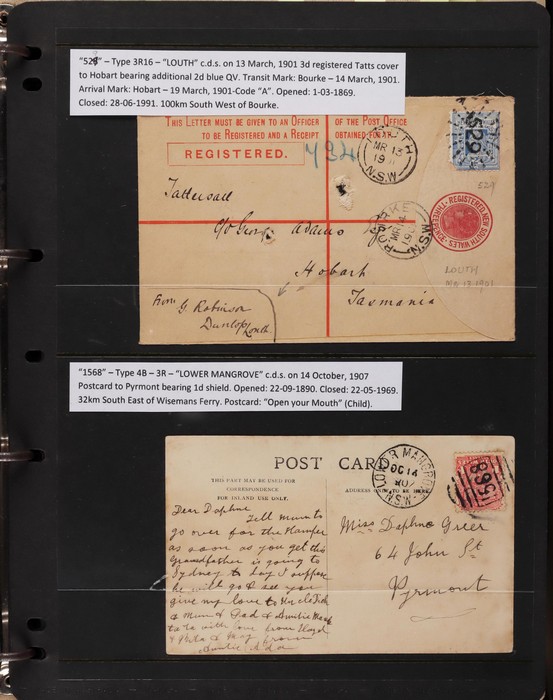 "529" – Type 3R16 – "LOUTH" c.d.s. on 13 March, 1901 3d registered Tatts cover
to Hobart bearing additional 2d blue QV. Transit Mark: Bourke – 14 March, 1901.
Arrival Mark: Hobart – 19 March, 1901-Code "A". Opened: 1-03-1869.
Closed: 28-06-1991. 100km South West of Bourke.
THIS LETTER MUST BE GIVEN TO AN OFFICER OF THE POST OFFICE
TO BE REGISTERED AND A RECEIPT OBTAINED FOR IT.
REGISTERED.
494
LOUTH
MR 13
19
N.S.W
529
529
Tattersall
c/o George Adams
Hobart
Tasmania
BOURKE
MR 14
190
N.S.W
THREEPENCE · REGISTERED NEW SOUTH WALES
LOUTH
MR 13 1901
From G. Robinson
Dunlop
Louth
"1568" – Type 4B – 3R – "LOWER MANGROVE" c.d.s. on 14 October, 1907
Postcard to Pyrmont bearing 1d shield. Opened: 22-09-1890. Closed: 22-05-1969.
32km South East of Wisemans Ferry. Postcard: "Open your Mouth" (Child).
POST CARD
THIS PART MAY BE USED FOR
CORRESPONDENCE
FOR INLAND USE ONLY.
ADDRESS ONLY TO BE HERE
LOWER MANGROVE
OC 14
907
N.S.W
1568
Dear Daphne
Tell mum to
go over for the Hamper
as soon as you get this
Grandfather is going to
Sydney to day I suppose
he will go & see you
give my love to Uncle Dick
& Mum & Dad & Auntie
ta ta with love from Lloyd
& & May from
Auntie Ada
Miss Daphne Greer
64 John St
Pyrmont